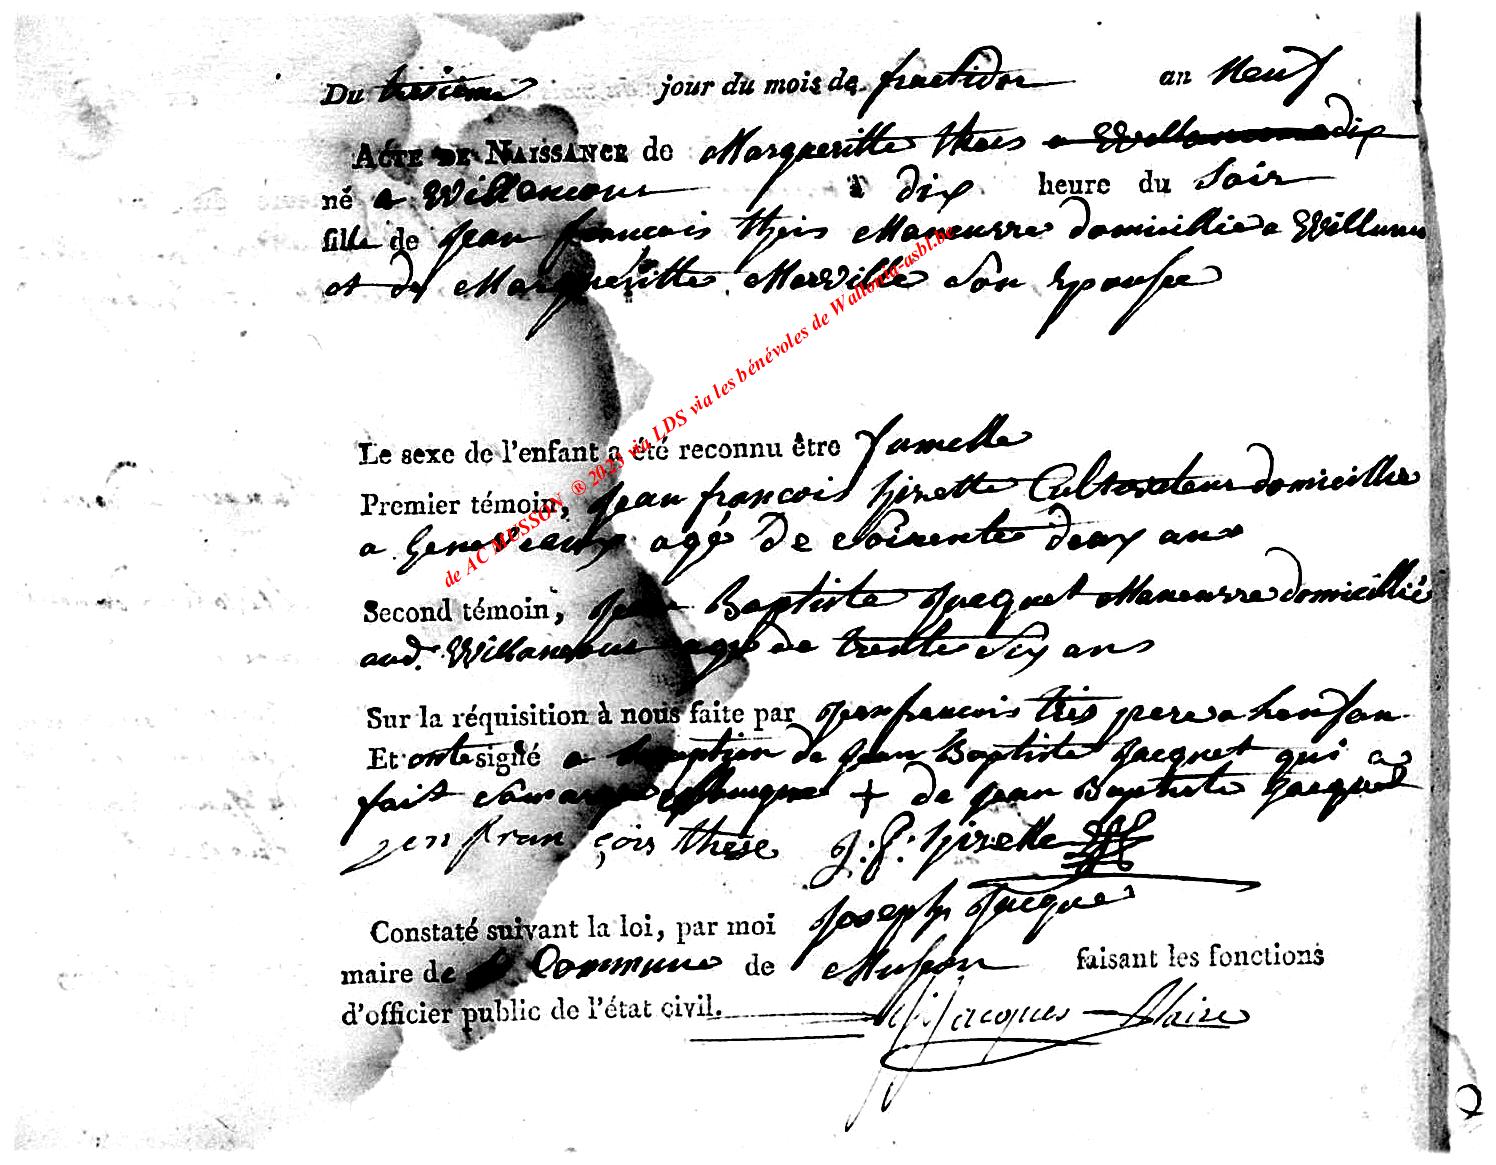 Du tresieme jour du mois de fructidor an Neuf
ACTE DE NAISSANCE de Margueritte theis a Willancour dix
né a Willancour à dix heure du Soir
fille de Jean francois theis Maneuvre domicillié a Willancour
et de Margueritte Merville Son Epousée
Le sexe de l'enfant a été reconnu être famelle
Premier témoin, Jean françois hizette Cultivateur domicillié
a Gennevaux agé De Soixente deux ans
Second témoin, Jean Baptiste Jacquet Maneuvre domicillié
aud. Willancour agé de trente Six ans
Sur la réquisition à nous faite par Jean francois theis pere a Lenfan
Et onte signé a Exeption de Jean Baptiste Jacquet qui a
fait Sa marque + de Jean Baptiste Jacquet
jen fran çois these J: F: hizette
Constaté suivant la loi, par moi Joseph Jacque
maire de la Commune de Musson faisant les fonctions
d'officier public de l'état civil. Jacques Maire
de AC MUSSON ® 2023 via LDS via les bénévoles de Wallonia-asbl.be